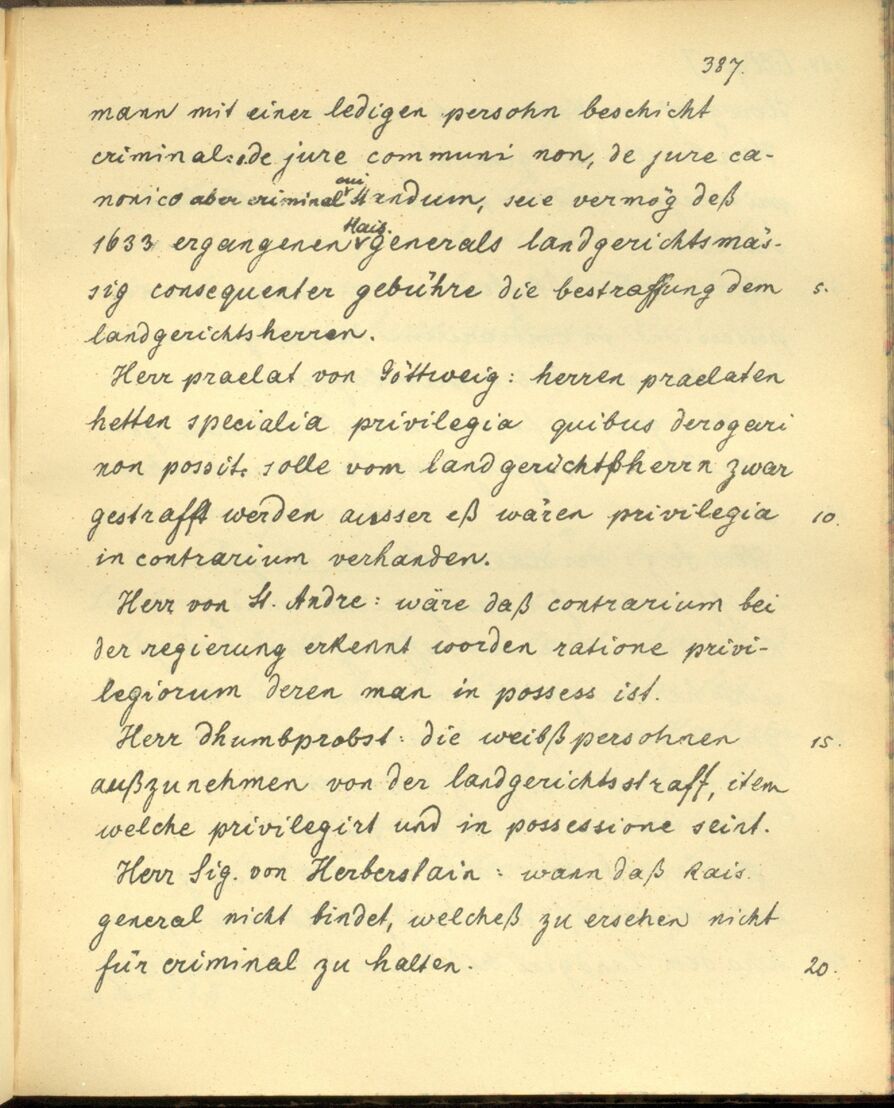 387.
mann mit einer ledigen persohn beschicht
criminal: de jure communi non, de jure ca-
nonico aber criminal, seie vermög deß
1633 ergangenen kais. generals landgerichtsmäs-
sig consequenter gebühre die bestraffung dem 5.
landgerichtsherren.
Herr praelat von Göttweig: herren praelaten
hetten specialia privilegia quibus derogari
non possit. solle vom landgerichtßherrn zwar
gestrafft werden ausser eß wären privilegia 10.
in contrarium verhanden.
Herr von St. Andre: wäre daß contrarium bei
der regierung erkennt worden ratione privi-
legiorum deren man in possess ist.
Herr dhumbprobst: die weibßpersohnen 15.
außzunehmen von der landgerichtsstraff, item
welche privilegirt und in possessione seint.
Herr Sig. von Herberstain: wann daß kais.
general nicht bindet, welcheß zu ersehen nicht
für criminal zu halten. 20.